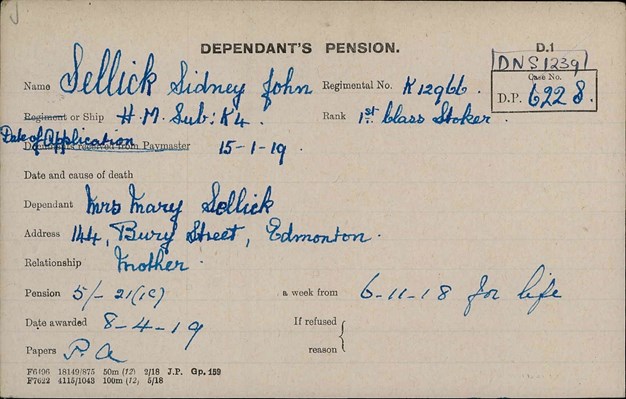 DEPENDANT'S PENSION.
D.1
DNS1239
Name Sellick Sidney John Regimental No. K12966.
Case No.
D.P. 6228.
Regiment or Ship H.M. Sub: K4. Rank 1st Class Stoker
Date of Application
Documents received from Paymaster 15-1-19.
Date and cause of death
Dependant Mrs Mary Sellick
Address 144, Bury Street, Edmonton.
Relationship Mother.
Pension 5/- 21(1c) a week from 6-11-18 for life
Date awarded 8-4-19 If refused
Papers P.A reason
F6496 18149/875 50m (12) 2/18 J.P. Gp. 159
F7622 4115/1043 100m (12) 5/18